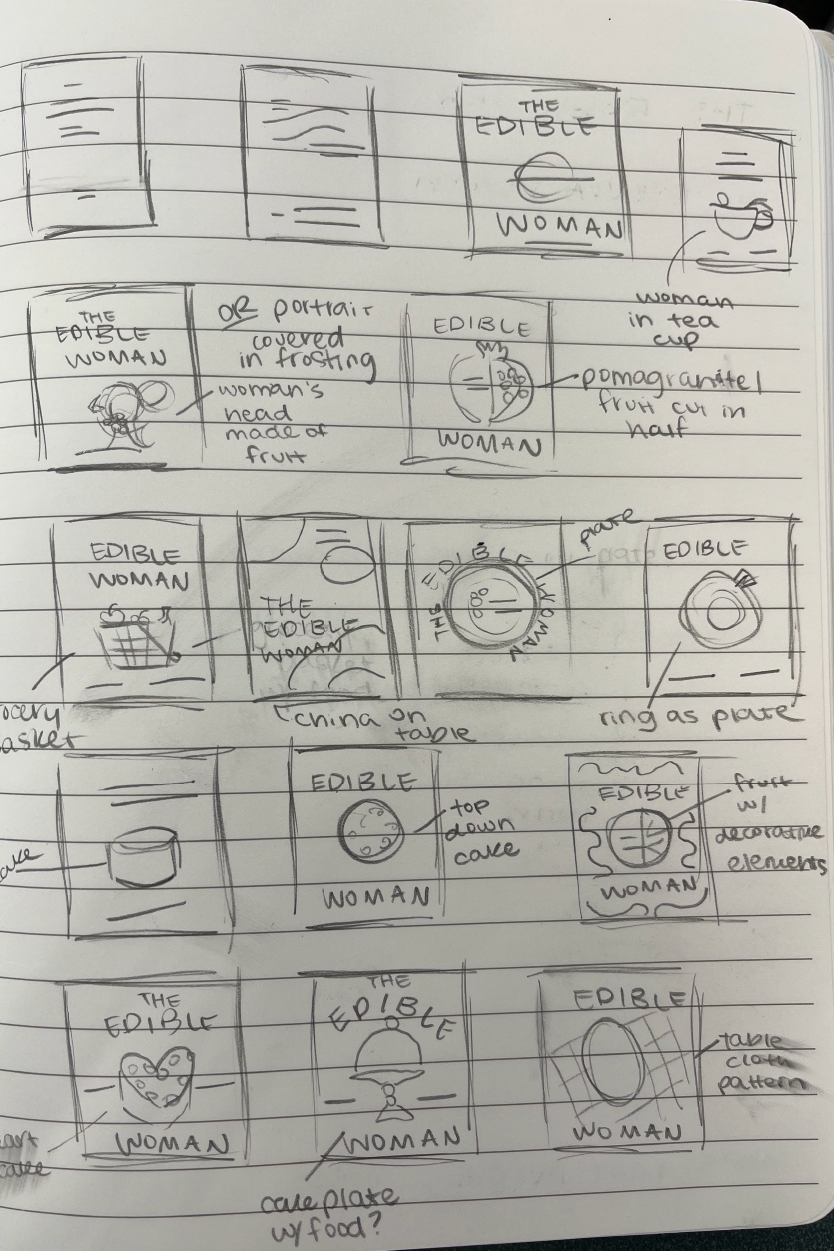 THE
EDIBLE
WOMAN
woman
in tea
cup
THE
EDIBLE
WOMAN
OR portrait
covered
in frosting
woman's
head
made of
fruit
EDIBLE
WOMAN
fruit cut in
half
EDIBLE
WOMAN
ocery
asket
THE
EDIBLE
WOMAN
china on
table
THE EDIBLE WOMAN
plate
EDIBLE
ring as plate
ake
EDIBLE
WOMAN
top
down
cake
EDIBLE
WOMAN
fruit
w/
decorative
elements
THE
EDIBLE
WOMAN
eart
cake
THE
EDIBLE
WOMAN
cake plate
w/ food?
EDIBLE
WOMAN
table
cloth
pattern